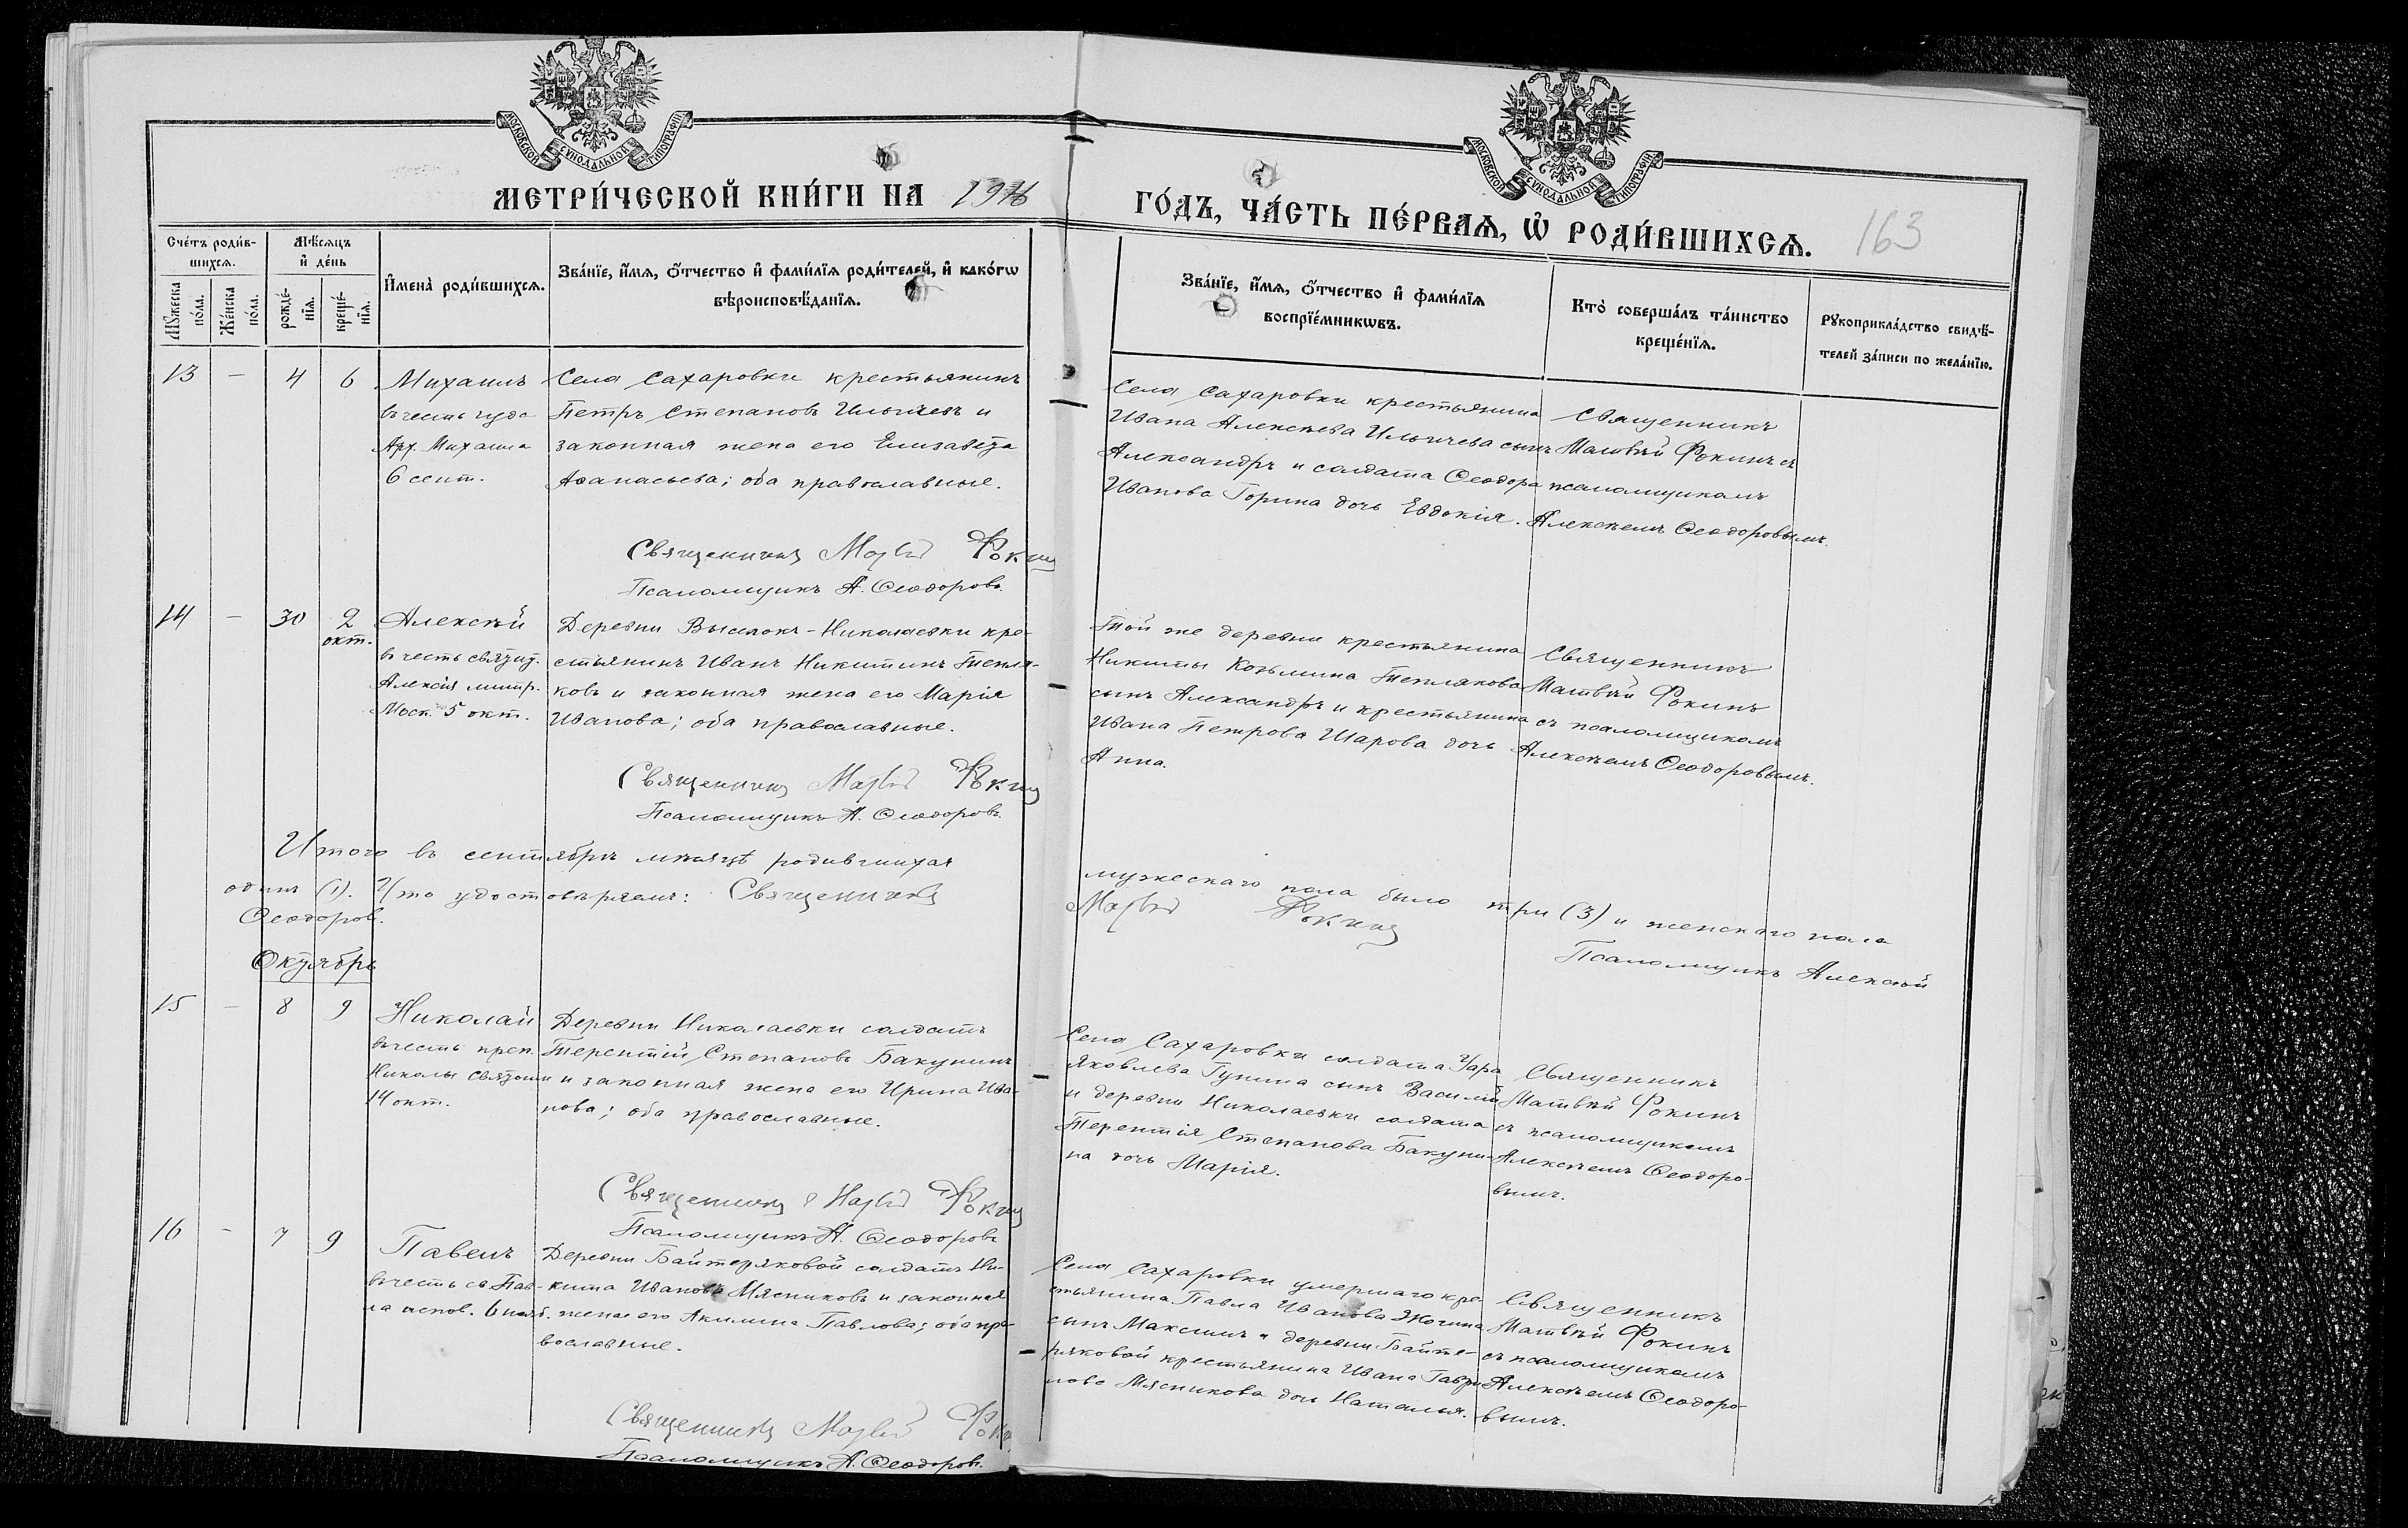 МОСКОВСКОЙ СУНОДАЛЬНОЙ ТИПОГРАФІИ
МОСКОВСКОЙ СУНОДАЛЬНОЙ ТИПОГРАФІИ
МЕТРИ́ЧЕСКОЙ КНИ́ГИ НА 1916
ГО́ДЪ, ЧА́СТЬ ПЕ́РВАѦ, Ѡ҆ РОДИ́ВШИХСѦ.
163
Сче́тъ роди́в-
шихсѧ.
Мѣ́сѧцъ
и҆ де́нь
Мꙋ́жеска
по́ла.
Же́нска
по́ла.
рожде́-
нїѧ.
креще́-
нїѧ.
И҆мена̀ роди́вшихсѧ.
Зва́нїе, и҆́мѧ, ѻ҆́тчество и҆ фами́лїѧ роди́телей, и҆ како́гѡ
вѣроисповѣ́данїѧ.
Зва́нїе, и҆́мѧ, ѻ҆́тчество и҆ фами́лїѧ
воспрїе́мникѡвъ.
Кто̀ соверша́лъ та́инство
креще́нїѧ.
Рꙋкоприкла́дство свидѣ́-
телей за́писи по жела́нїю.
13 — 4 6
Михаилъ
въ честь чуда
Арх. Михаила
6 сент.
Села Сахаровки крестьянинъ
Петръ Степановъ Ильичевъ и
законная жена его Елизавета
Аѳанасьева; оба православные.
Священникъ Матвѣй Фокинъ
Псаломщикъ А. Ѳеодоровъ.
Села Сахаровки крестьянина
Ивана Алексѣева Ильичева сынъ
Александръ и солдата Ѳеодора
Иванова Горина дочь Евдокія.
Священникъ
Матвѣй Фокинъ съ
псаломщикомъ
Алексѣемъ Ѳеодоровымъ.
14 — 30 2
окт.
Алексѣй
въ честь святит.
Алексія митр.
Моск. 5 окт.
Деревни Выселокъ-Николаевки кре-
стьянинъ Иванъ Никитинъ Тепля-
ковъ и законная жена его Марія
Иванова; оба православные.
Священникъ Матвѣй Фокинъ
Псаломщикъ А. Ѳеодоровъ.
Той же деревни крестьянина
Никиты Козьмина Теплякова
сынъ Александръ и крестьянина
Ивана Петрова Шарова дочь
Анна.
Священникъ
Матвѣй Фокинъ
съ псаломщикомъ
Алексѣемъ Ѳеодоровымъ.
Итого въ сентябрѣ мѣсяцѣ родившихся мужескаго пола было три (3) и женскаго пола
одинъ (1). Что удостовѣряемъ: Священникъ Матвѣй Фокинъ Псаломщикъ Алексѣй
Ѳеодоров.
Октябрь
15 — 8 9
Николай
въ честь преп.
Николы Святоши
14 окт.
Деревни Николаевки солдатъ
Терентій Степановъ Бакунинъ
и законная жена его Ирина Ива-
нова; оба православные.
Священникъ Матвѣй Фокинъ
Псаломщикъ А. Ѳеодоровъ
Села Сахаровки солдата
Яковлева Гунина сынъ Василій
и деревни Николаевки солдата
Терентія Степанова Бакуни-
на дочь Марія.
Священникъ
Матвѣй Фокинъ
съ псаломщикомъ
Алексѣемъ Ѳеодоро-
вымъ.
16 — 7 9
Павелъ
въ честь св Пав-
ла испов. 6 нояб.
Деревни Байтеряковой солдатъ Ни-
кита Ивановъ Мясниковъ и законная
жена его Акилина Павлова; оба пра-
вославные.
Священникъ Матвѣй
Псаломщикъ А. Ѳеодоровъ.
Села Сахаровки умершаго кре-
стьянина Павла Иванова
сынъ Максимъ и деревни Байте-
ряковой крестьянина Ивана Гаври-
лова Мясникова дочь Наталья.
Священникъ
Матвѣй Фокинъ
съ псаломщикомъ
Алексѣемъ Ѳеодоро-
вымъ.